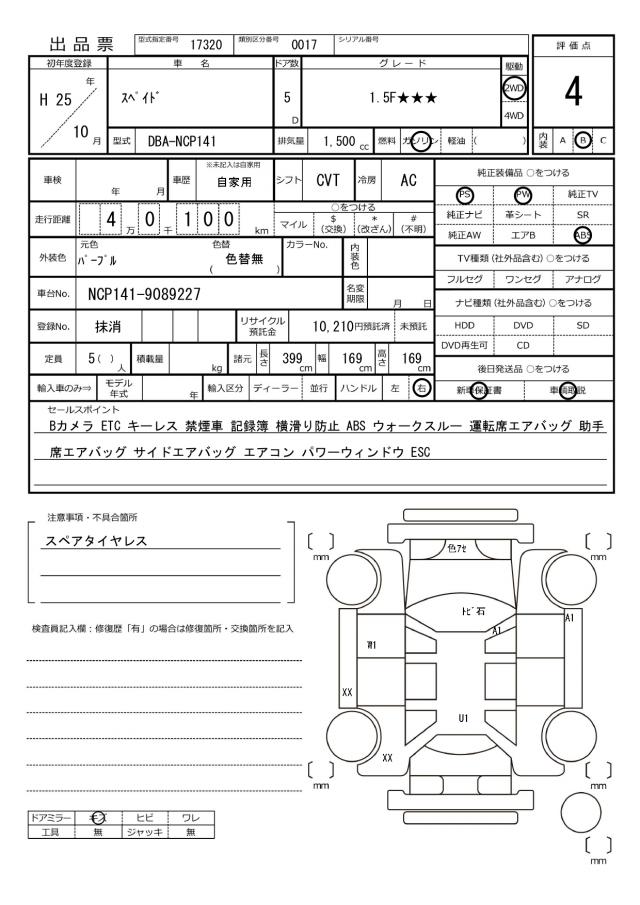 出品票 型式指定番号 17320 類別区分番号 0017 シリアル番号
評価点
4
初年度登録 車名 ドア数 グレード 駆動
H 25 年 ｽﾍﾟｲﾄﾞ 5 D 1.5F★★★ 2WD
10 月 4WD
型式 DBA-NCP141 排気量 1,500 cc 燃料 ガソリン 軽油 ( ) 内装 A B C
車検 年 月 車歴 ※未記入は自家用 自家用 シフト CVT 冷房 AC
純正装備品 ○をつける
PS PW 純正TV
純正ナビ 革シート SR
純正AW エアB ABS
走行距離 4 万 0 千 1 0 0 km ○をつける
マイル $ (交換) * (改ざん) # (不明)
外装色 元色 ﾊﾟｰﾌﾟﾙ 色替 ( 色替無 ) カラーNo. 内装色
TV種類 (社外品含む) ○をつける
フルセグ ワンセグ アナログ
車台No. NCP141-9089227 名変期限 月 日
ナビ種類 (社外品含む) ○をつける
HDD DVD SD
DVD再生可 CD
登録No. 抹消 リサイクル預託金 10,210円預託済 未預託
定員 5 ( ) 人 積載量 kg 諸元 長さ 399 cm 幅 169 cm 高さ 169 cm
後日発送品 ○をつける
新車保証書 車輌取説
輸入車のみ⇒ モデル年式 年 輸入区分 ディーラー 並行 ハンドル 左 右
セールスポイント
Bカメラ ETC キーレス 禁煙車 記録簿 横滑り防止 ABS ウォークスルー 運転席エアバッグ 助手
席エアバッグ サイドエアバッグ エアコン パワーウィンドウ ESC
注意事項・不具合箇所
スペアタイヤレス
検査員記入欄：修復歴「有」の場合は修復箇所・交換箇所を記入
〔 〕 mm
〔 〕 mm
色ｱｾ
ﾄﾋﾞ石
A1
A1
XX
U1
XX
〔 〕 mm
〔 〕 mm
〔 〕 mm
ドアミラー キズ ヒビ ワレ
工具 無 ジャッキ 無